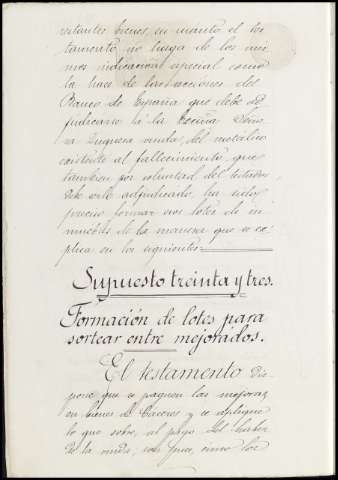 restantes bienes, en cuanto el tes-
tamento no haga de los mis-
mos indicacion especial como
la hace de las acciones del
Banco de España que debe ad-
judicarse á la Escma Seño-
ra Duquesa viuda, del metálico
existente al fallecimiento, que
tambien por voluntad del testador,
debe serle adjudicado, ha sido
preciso formar dos lotes de in-
muebles de la manera que se ex-
plica en los siguientes.
Supuesto treinta y tres.
Formación de lotes para
sortear entre mejorados.
El testamento dis-
pone que se paguen las mejoras
en bienes de Cáceres y se aplique
lo que sobre, al pago del haber
de la viuda, con que, como los